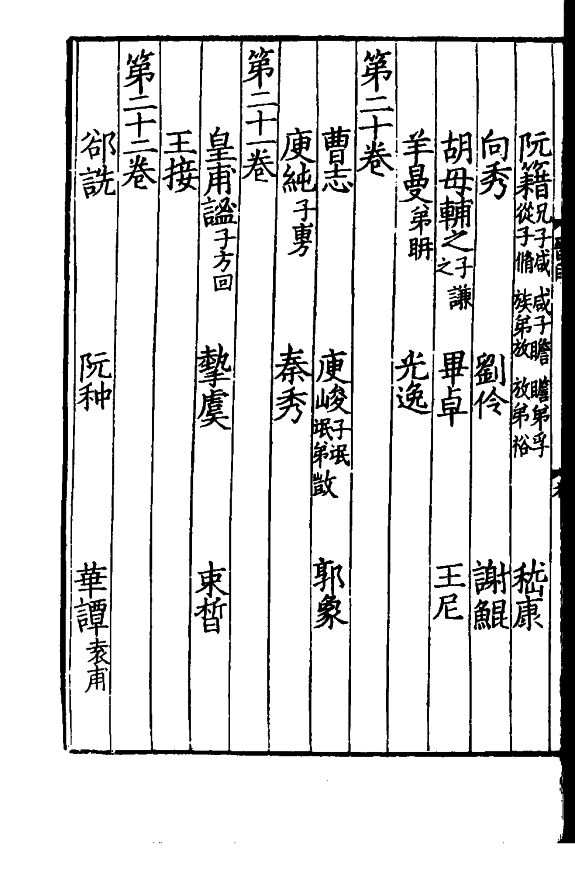 阮籍兄子咸 咸子瞻 瞻弟孚 從子脩 族弟放 放弟裕 嵇康
向秀 劉伶 謝鯤
胡母輔之子謙之 畢卓 王尼
羊曼弟聃 光逸
第二十卷
曹志 庾峻子珉 珉弟敳 郭象
庾純子旉 秦秀
第二十一卷
皇甫謐子方回 摯虞 束皙
王接
第二十二卷
郤詵 阮种 華譚袁甫